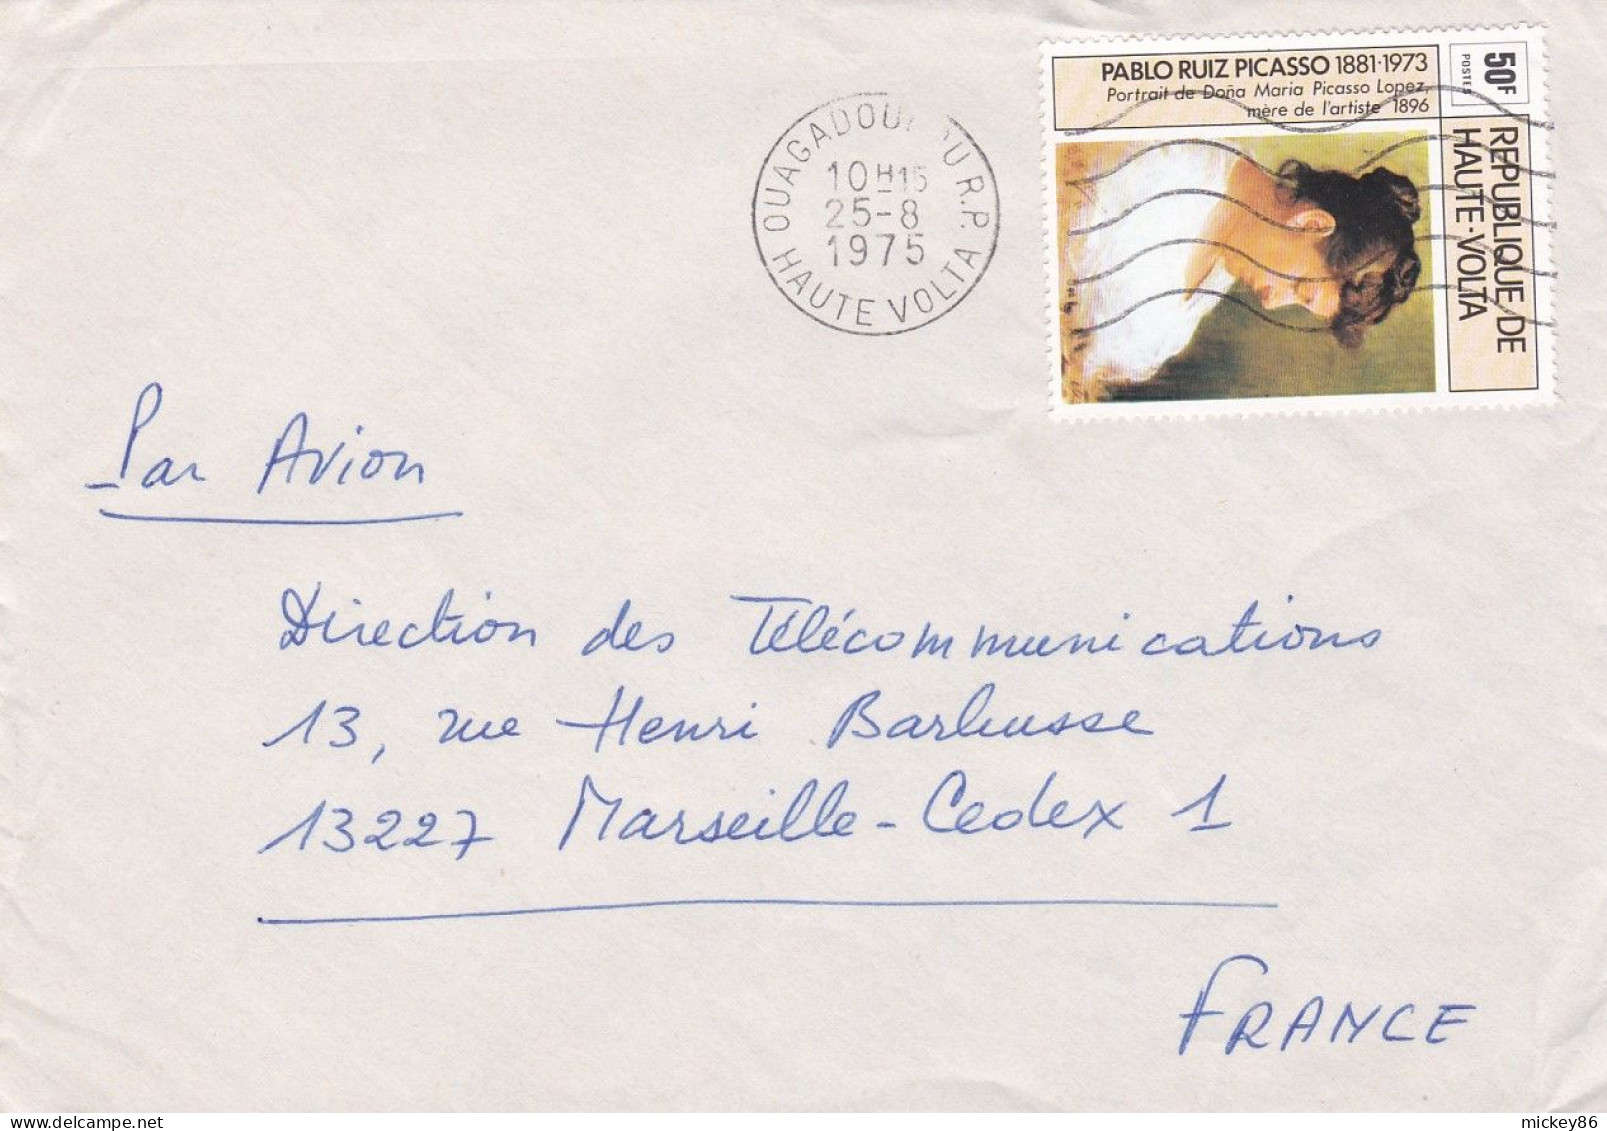 PABLO RUIZ PICASSO 1881-1973
Portrait de Doña Maria Picasso Lopez,
mère de l'artiste 1896
50F
POSTES
REPUBLIQUE DE
HAUTE-VOLTA
OUAGADOUGOU R.P.
10H15
25-8
1975
HAUTE VOLTA
Par Avion
Direction des Télécommunications
13, rue Henri Barbusse
13227 Marseille-Cedex 1
FRANCE
www.delcampe.net
mickey86